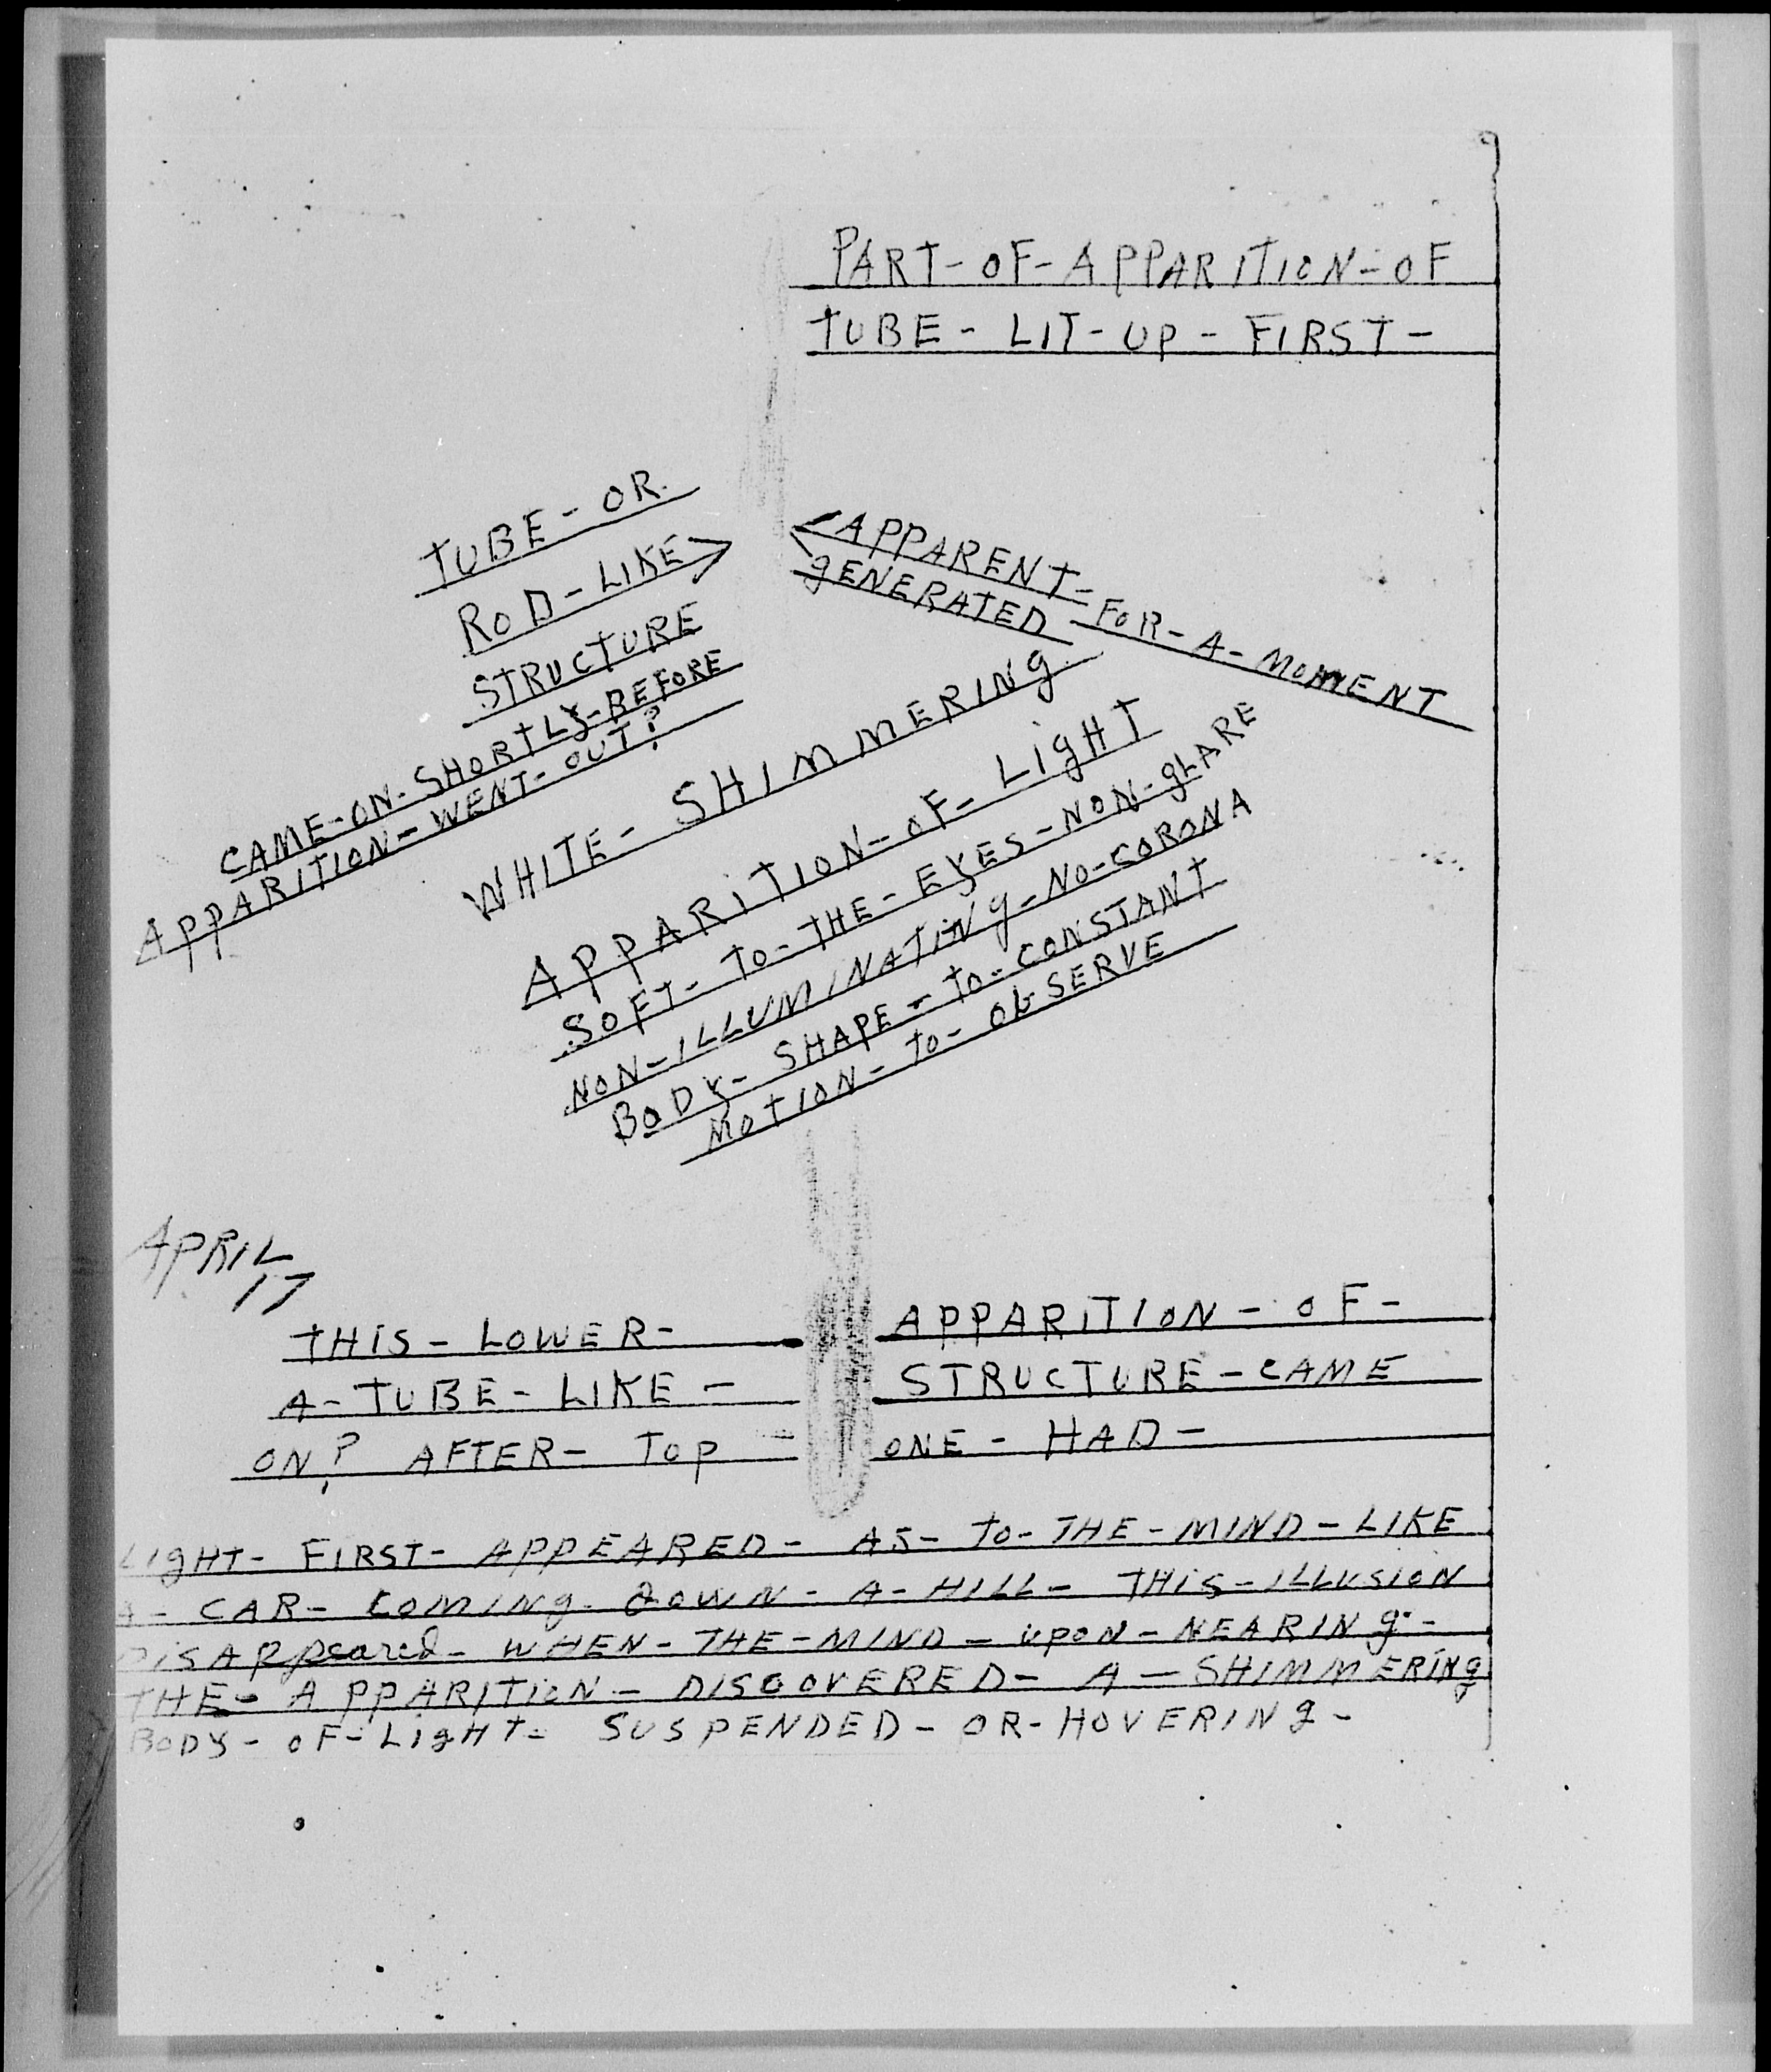 PART-OF-APPARITION-OF
TUBE - LIT-UP - FIRST -
TUBE - OR
ROD-LIKE
STRUCTURE
CAME-ON-SHORTLY-BEFORE
APPARITION-WENT-OUT?
APPARENT-FOR-A-MOMENT
gENERATED
WHITE- SHIMMERINg
APPARITION-OF-LIgHT
SOFT-TO-THE-EYES-NON-gLARE
NON-ILLUMINATINg-NO-CORONA
BODY- SHAPE-TO-CONSTANT
MOTION-TO-OBSERVE
APRIL
17
THIS-LOWER- APPARITION-OF-
A-TUBE-LIKE- STRUCTURE-CAME
ON? AFTER- TOP - ONE-HAD-
LIgHT- FIRST- APPEARED- AS-TO-THE-MIND-LIKE
A- CAR- COMINg- DOWN- A-HILL- THIS-ILLUSION
DISAPpeared- WHEN-THE-MIND-UPON-NEARINg-
THE- APPARITION- DISCOVERED- A-SHIMMERINg
BODY-OF-LIgHT- SUSPENDED-OR-HOVERINg-